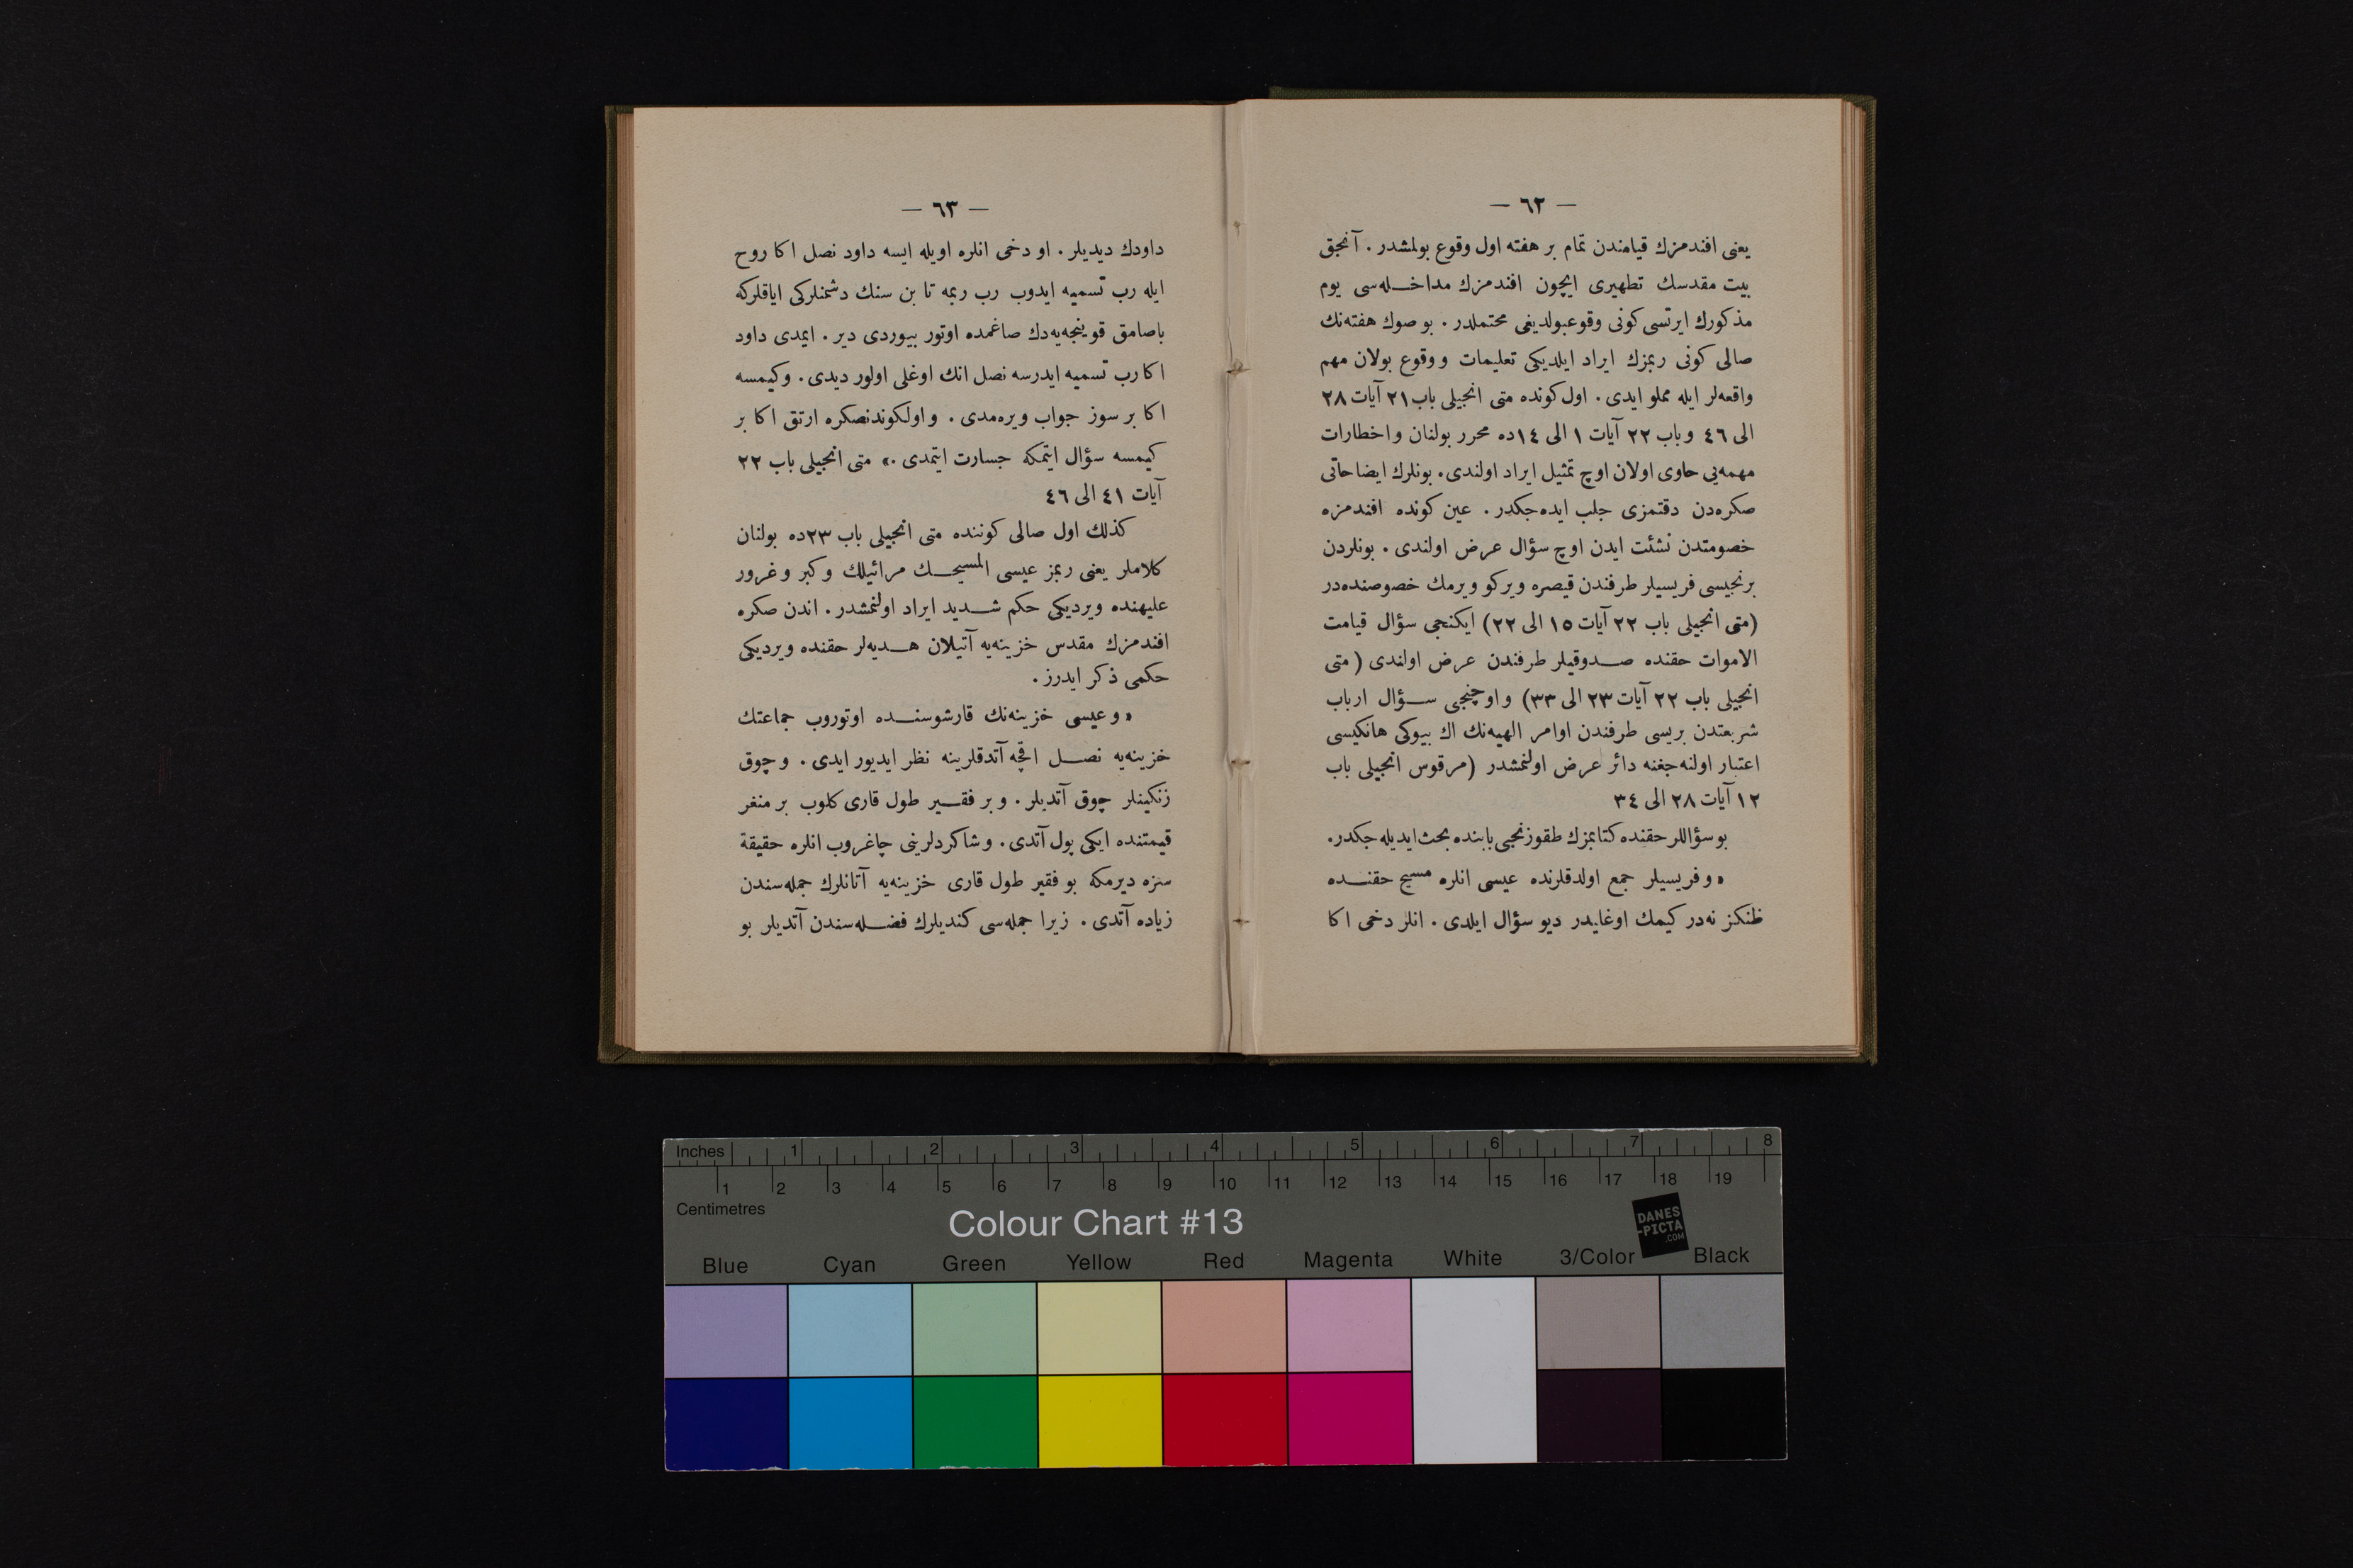 — ٦٢ —
يعنى افندمزك قيامندن تمام بر هفته اول وقوع بولمشدر. آنجق
بيت مقدسك تطهيرى ايچون افندمزك مداخله‌سى يوم
مذكورك ايرتسى كونى وقوعبولديغى محتملدر. بو صوك هفته‌نك
صالى كونى ربمزك ايراد ايلديكى تعليمات و وقوع بولان مهم
واقعه‌لر ايله مملو ايدى. اول كونده متى انجيلى باب ٢١ آيات ٢٨
الى ٤٦ و باب ٢٢ آيات ١ الى ١٤ده محرر بولنان و اخطارات
مهمه‌يى حاوى اولان اوچ تمثيل ايراد اولندى. بونلرك ايضاحاتى
صكره‌دن دقتمزى جلب ايده‌جكدر. عين كونده افندمزه
خصومتدن نشئت ايدن اوچ سؤال عرض اولندى. بونلردن
برنجيسى فريسيلر طرفندن قيصره ويركو ويرمك خصوصنده‌در
(متى انجيلى باب ٢٢ آيات ١٥ الى ٢٢) ايكنجى سؤال قيامت
الاموات حقنده صدوقيلر طرفندن عرض اولندى (متى
انجيلى باب ٢٢ آيات ٢٣ الى ٣٣) و اوچنجى سؤال ارباب
شريعتدن بريسى طرفندن اوامر الهيه‌نك اك بيوكى هانكيسى
اعتبار اولنه‌جغنه دائر عرض اولنمشدر (مرقوس انجيلى باب
١٢ آيات ٢٨ الى ٣٤
بو سؤاللر حقنده كتابمزك طقوزنجى بابنده بحث ايديله‌جكدر.
« و فريسيلر جمع اولدقلرنده عيسى انلره مسيح حقنده
ظنكز نه‌در كيمك اوغليدر ديو سؤال ايلدى. انلر دخى اكا
— ٦٣ —
داودك ديديلر. او دخى انلره اويله ايسه داود نصل اكا روح
ايله رب تسميه ايدوب رب ربمه تا بن سنك دشمنلركى اياقلركه
باصامق قوينجه‌يه‌دك صاغمده اوتور بيوردى دير. ايمدى داود
اكا رب تسميه ايدرسه نصل انك اوغلى اولور ديدى. وكيمسه
اكا بر سوز جواب ويره‌مدى. و اولكوندنصكره ارتق اكا بر
كيمسه سؤال ايتمكه جسارت ايتمدى.» متى انجيلى باب ٢٢
آيات ٤١ الى ٤٦
كذلك اول صالى كوننده متى انجيلى باب ٢٣ده بولنان
كلاملر يعنى ربمز عيسى المسيحك مرائيلك و كبر و غرور
عليهنده ويرديكى حكم شديد ايراد اولنمشدر. اندن صكره
افندمزك مقدس خزينه‌يه آتيلان هديه‌لر حقنده ويرديكى
حكمى ذكر ايدرز.
« و عيسى خزينه‌نك قارشوسنده اوتوروب جماعتك
خزينه‌يه نصل اقچه آتدقلرينه نظر ايديور ايدى. و چوق
زنكينلر چوق آتديلر. و بر فقير طول قارى كلوب بر منغر
قيمتنده ايكى پول آتدى. و شاكردلرينى چاغروب انلره حقيقة
سزه ديرمكه بو فقير طول قارى خزينه‌يه آتانلرك جمله‌سندن
زياده آتدى. زيرا جمله‌سى كنديلرك فضله‌سندن آتديلر بو
Inches 1 2 3 4 5 6 7 8
1 2 3 4 5 6 7 8 9 10 11 12 13 14 15 16 17 18 19
Centimetres
Colour Chart #13
DANES
-PICTA
.COM
Blue Cyan Green Yellow Red Magenta White 3/Color Black